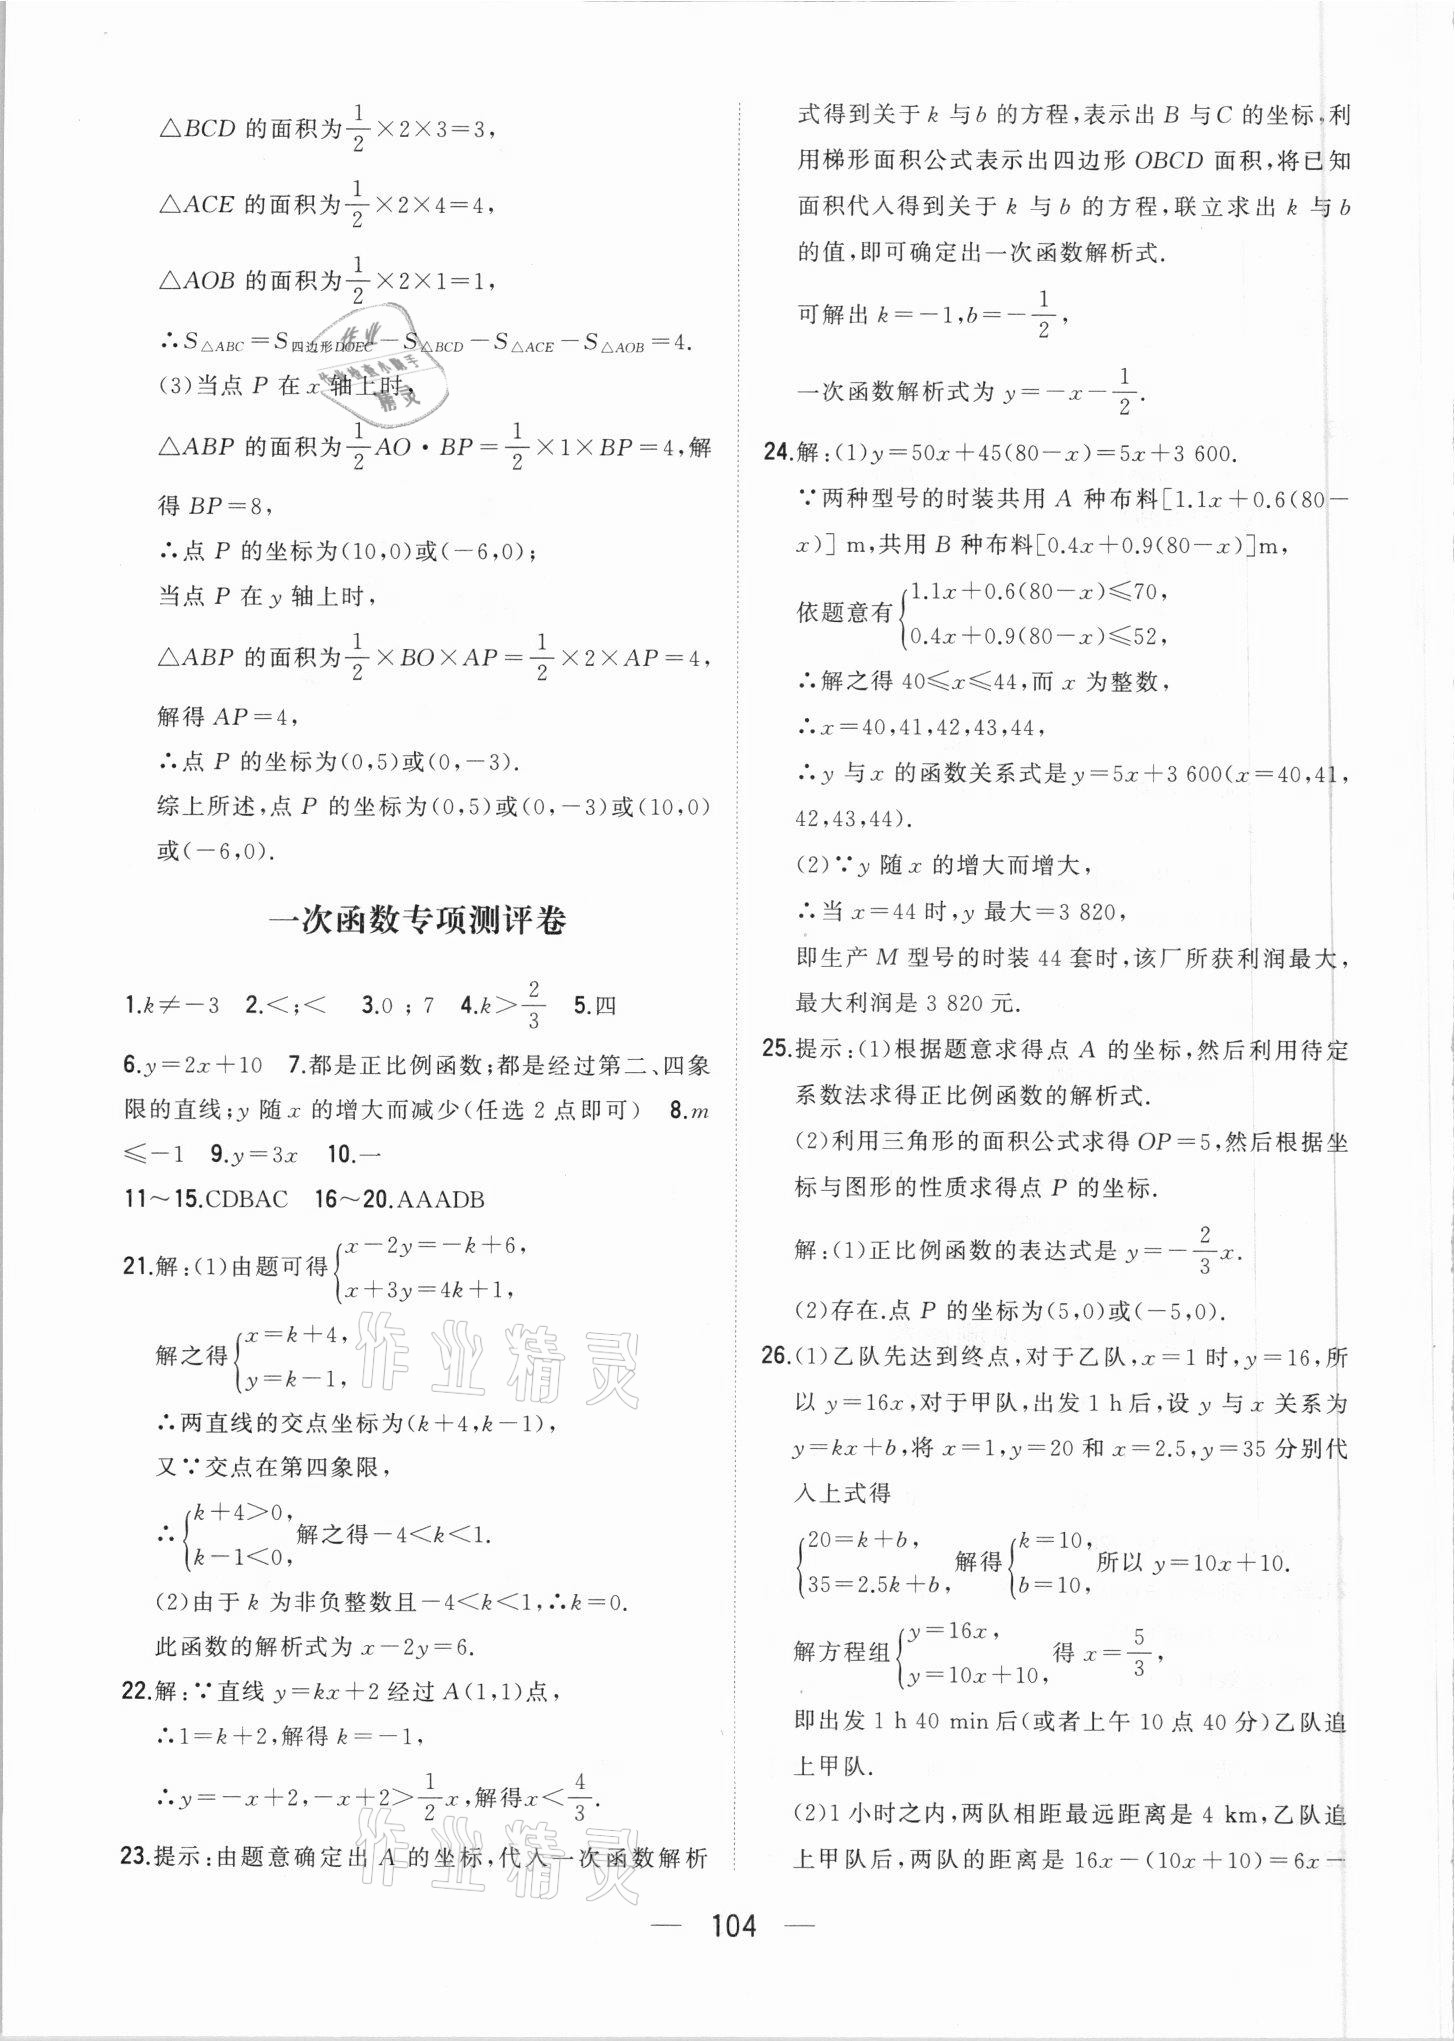 △BCD 的面积为1/2×2×3=3,
△ACE 的面积为1/2×2×4=4,
△AOB 的面积为1/2×2×1=1,
∴S△ABC=S四边形DOEC-S△BCD-S△ACE-S△AOB=4.
(3)当点 P 在 x 轴上时,
△ABP 的面积为1/2AO·BP=1/2×1×BP=4,解
得 BP=8,
∴点 P 的坐标为(10,0)或(-6,0);
当点 P 在 y 轴上时,
△ABP 的面积为1/2×BO×AP=1/2×2×AP=4,
解得 AP=4,
∴点 P 的坐标为(0,5)或(0,-3).
综上所述,点 P 的坐标为(0,5)或(0,-3)或(10,0)
或(-6,0).
一次函数专项测评卷
1.k≠-3 2.<;< 3.0 ; 7 4.k>2/3 5.四
6.y=2x+10 7.都是正比例函数;都是经过第二、四象
限的直线;y 随 x 的增大而减少(任选 2 点即可) 8.m
≤-1 9.y=3x 10.一
11~15.CDBAC 16~20.AAADB
21.解:(1)由题可得{x-2y=-k+6,
x+3y=4k+1,
解之得{x=k+4,
y=k-1,
∴两直线的交点坐标为(k+4,k-1),
又∵交点在第四象限,
∴{k+4>0,
k-1<0,解之得-4<k<1.
(2)由于 k 为非负整数且-4<k<1,∴k=0.
此函数的解析式为 x-2y=6.
22.解:∵直线 y=kx+2 经过 A(1,1)点,
∴1=k+2,解得 k=-1,
∴y=-x+2,-x+2>1/2x,解得x<4/3.
23.提示:由题意确定出 A 的坐标,代入一次函数解析
式得到关于 k 与 b 的方程,表示出 B 与 C 的坐标,利
用梯形面积公式表示出四边形 OBCD 面积,将已知
面积代入得到关于 k 与 b 的方程,联立求出 k 与 b
的值,即可确定出一次函数解析式.
可解出 k=-1,b=-1/2,
一次函数解析式为 y=-x-1/2.
24.解:(1)y=50x+45(80-x)=5x+3 600.
∵两种型号的时装共用 A 种布料[1.1x+0.6(80-
x)] m,共用 B 种布料[0.4x+0.9(80-x)]m,
依题意有{1.1x+0.6(80-x)≤70,
0.4x+0.9(80-x)≤52,
∴解之得 40≤x≤44,而 x 为整数,
∴x=40,41,42,43,44,
∴y 与 x 的函数关系式是 y=5x+3 600(x=40,41,
42,43,44).
(2)∵y 随 x 的增大而增大,
∴当 x=44 时,y 最大=3 820,
即生产 M 型号的时装 44 套时,该厂所获利润最大,
最大利润是 3 820 元.
25.提示:(1)根据题意求得点 A 的坐标,然后利用待定
系数法求得正比例函数的解析式.
(2)利用三角形的面积公式求得 OP=5,然后根据坐
标与图形的性质求得点 P 的坐标.
解:(1)正比例函数的表达式是 y=-2/3x.
(2)存在.点 P 的坐标为(5,0)或(-5,0).
26.(1)乙队先达到终点,对于乙队,x=1 时,y=16,所
以 y=16x,对于甲队,出发 1 h 后,设 y 与 x 关系为
y=kx+b,将 x=1,y=20 和 x=2.5,y=35 分别代
入上式得
{20=k+b,
35=2.5k+b, 解得{k=10,
b=10, 所以 y=10x+10.
解方程组{y=16x,
y=10x+10, 得 x=5/3,
即出发 1 h 40 min 后(或者上午 10 点 40 分)乙队追
上甲队.
(2)1 小时之内,两队相距最远距离是 4 km,乙队追
上甲队后,两队的距离是 16x-(10x+10)=6x-
— 104 —
作业
作业检查小助手
精灵
作业精灵
作业精灵